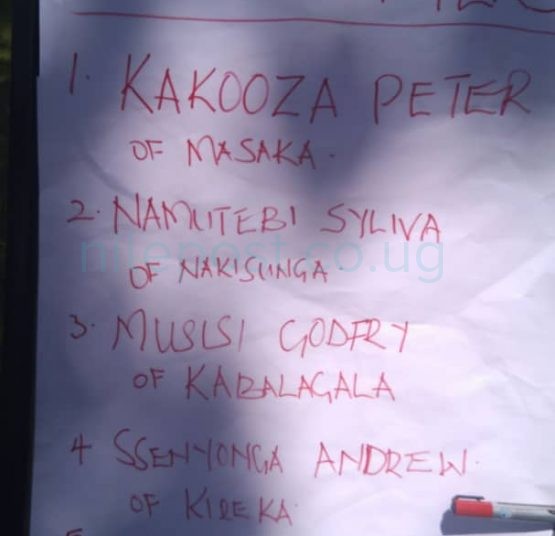 1. KAKOOZA PETER
OF MASAKA.
2. NAMUTEBI SYLIVA
OF NAKISUNGA
3. MUSISI GODFRY
OF KABALAGALA
4 SSENYONGA ANDREW.
OF KIREKA